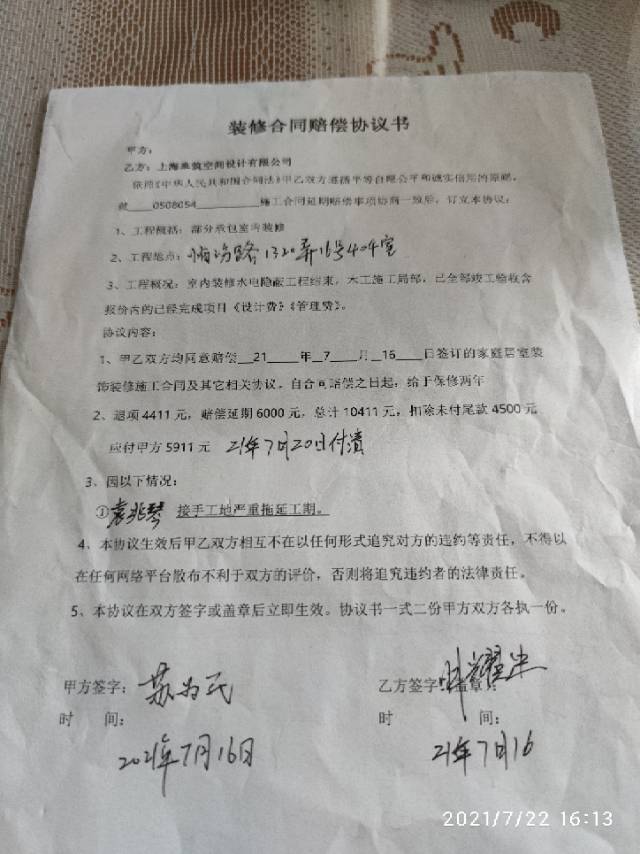 装修合同赔偿协议书
甲方：
乙方：上海 空间设计有限公司
依照《中华人民共和国合同法》甲乙双方遵循平等自愿公平和诚实信用的原则，
就___0508054___施工合同延期赔偿事项协商一致后，订立本协议：
1、工程概括：部分承包室内装修
2、工程地点： 路1320弄16号404室
3、工程概况：室内装修水电隐蔽工程结束，木工施工局部，已全部竣工验收含
报价内的已经完成项目《设计费》《管理费》。
协议内容：
1、甲乙双方均同意赔偿__21____年__7____月__16____日签订的家庭居室装
饰装修施工合同及其它相关协议。自合同赔偿之日起，给于保修两年
2、退项 4411 元，赔偿延期 6000 元，总计 10411 元，扣除未付尾款 4500 元
应付甲方 5911 元 21年7月20日付清
3、因以下情况：
①袁兆琴 接手工地严重拖延工期。
4、本协议生效后甲乙双方相互不在以任何形式追究对方的违约等责任，不得以
在任何网络平台散布不利于双方的评价，否则将追究违约者的法律责任。
5、本协议在双方签字或盖章后立即生效。协议书一式二份甲方双方各执一份。
甲方签字：苏为民
乙方签字 盖章：
时 间：
时 间：
2021年7月16日
21年7月16
2021/7/22 16:13